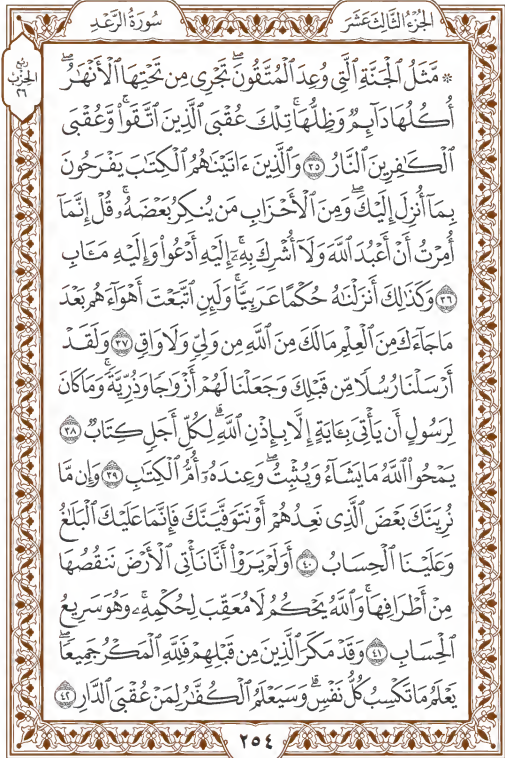 سُورَةُ الرَّعْدِ
الجُزْءُ الثَّالِثَ عَشَرَ
ربع
الحزب
٢٦
۞ مَّثَلُ ٱلۡجَنَّةِ ٱلَّتِي وُعِدَ ٱلۡمُتَّقُونَۖ تَجۡرِي مِن تَحۡتِهَا ٱلۡأَنۡهَٰرُۖ
أُكُلُهَا دَآئِمٞ وَظِلُّهَاۚ تِلۡكَ عُقۡبَى ٱلَّذِينَ ٱتَّقَواْۚ وَّعُقۡبَى
ٱلۡكَٰفِرِينَ ٱلنَّارُ ٣٥ وَٱلَّذِينَ ءَاتَيۡنَٰهُمُ ٱلۡكِتَٰبَ يَفۡرَحُونَ
بِمَآ أُنزِلَ إِلَيۡكَۖ وَمِنَ ٱلۡأَحۡزَابِ مَن يُنكِرُ بَعۡضَهُۥۚ قُلۡ إِنَّمَآ
أُمِرۡتُ أَنۡ أَعۡبُدَ ٱللَّهَ وَلَآ أُشۡرِكَ بِهِۦٓۚ إِلَيۡهِ أَدۡعُواْ وَإِلَيۡهِ مَـَٔابِ
٣٦ وَكَذَٰلِكَ أَنزَلۡنَٰهُ حُكۡمًا عَرَبِيّٗاۚ وَلَئِنِ ٱتَّبَعۡتَ أَهۡوَآءَهُم بَعۡدَ
مَا جَآءَكَ مِنَ ٱلۡعِلۡمِ مَا لَكَ مِنَ ٱللَّهِ مِن وَلِيّٖ وَلَا وَاقٖ ٣٧ وَلَقَدۡ
أَرۡسَلۡنَا رُسُلٗا مِّن قَبۡلِكَ وَجَعَلۡنَا لَهُمۡ أَزۡوَٰجٗا وَذُرِّيَّةٗۚ وَمَا كَانَ
لِرَسُولٍ أَن يَأۡتِيَ بِـَٔايَةٍ إِلَّا بِإِذۡنِ ٱللَّهِۗ لِكُلِّ أَجَلٖ كِتَابٞ ٣٨
يَمۡحُواْ ٱللَّهُ مَا يَشَآءُ وَيُثۡبِتُۖ وَعِندَهُۥٓ أُمُّ ٱلۡكِتَٰبِ ٣٩ وَإِن مَّا
نُرِيَنَّكَ بَعۡضَ ٱلَّذِي نَعِدُهُمۡ أَوۡ نَتَوَفَّيَنَّكَ فَإِنَّمَا عَلَيۡكَ ٱلۡبَلَٰغُ
وَعَلَيۡنَا ٱلۡحِسَابُ ٤٠ أَوَلَمۡ يَرَوۡاْ أَنَّا نَأۡتِي ٱلۡأَرۡضَ نَنقُصُهَا
مِنۡ أَطۡرَافِهَاۚ وَٱللَّهُ يَحۡكُمُ لَا مُعَقِّبَ لِحُكۡمِهِۦۚ وَهُوَ سَرِيعُ
ٱلۡحِسَابِ ٤١ وَقَدۡ مَكَرَ ٱلَّذِينَ مِن قَبۡلِهِمۡ فَلِلَّهِ ٱلۡمَكۡرُ جَمِيعٗاۖ
يَعۡلَمُ مَا تَكۡسِبُ كُلُّ نَفۡسٖۗ وَسَيَعۡلَمُ ٱلۡكُفَّٰرُ لِمَنۡ عُقۡبَى ٱلدَّارِ ٤٢
٢٥٤